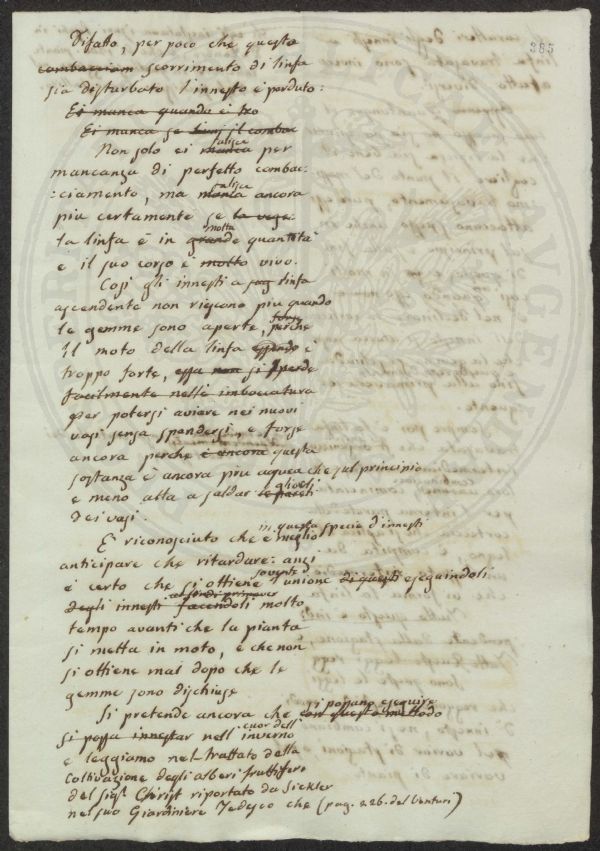 385
Difatto, per poco che questo
combacciam scorrimento di linfa
sia disturbato l'innesto è perduto:
Ei manca quando ei tro
Ei manca se il combac
fallisce
Non solo ei manca per
mancanza di perfetto combac:
:ciamento, ma manca ancora
fallisce
più certamente se la vege:
molta
la linfa è in grande quantità
e il suo corso è molto vivo.
Così gli innesti a linfa
ascendente non riescono più quando
le gemme sono aperte, perche
forse
il moto della linfa essendo è
troppo forte, essa non si sperde
facilmente nelle imboccatura
per potersi aviare nei nuovi
vasi senza spandersi, e forse
ancora perche è ancora questa
sostanza è ancora più aquea che sul principio
e meno atta a saldar le pareti
gli orli
dei vasi.
in questa specie d'innesti
È riconosciuto che è meglio
anticipare che ritardare: anzi
sovente
è certo che si ottiene l'unione di questi eseguindoli
degli innesti facendoli molto
tempo avanti che la pianta
si metta in moto, e che non
si ottiene mai dopo che le
gemme sono dischiuse
si possano eseguire
Si pretende ancora che con questo mettodo
cuor dell'
si possa innestar nell'inverno
e leggiamo nel trattato della
Coltivazione degli alberi fruttiferi
del sigr Christ riportato da Sickler
nel suo Giardiniere Tedesco che (pag. 226. del Venturi)